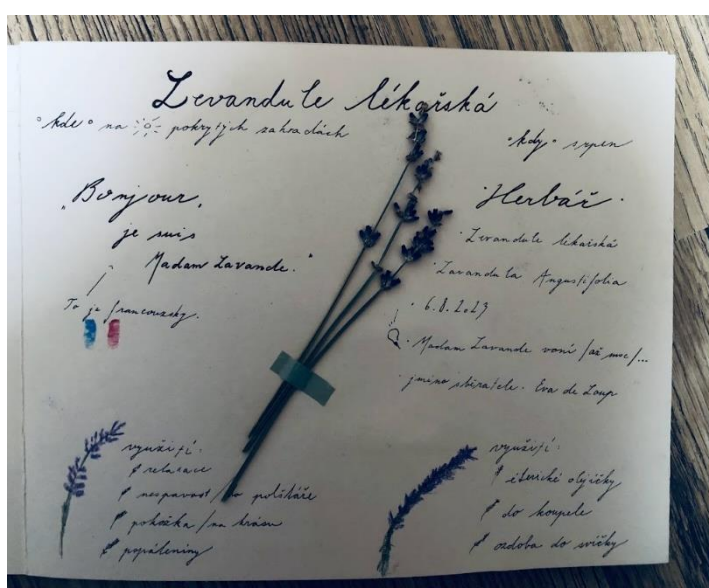 Levandule lékařská
°kde° na pokrytých zahradách
°kdy° srpen
"Bonjour,
je suis
Madam Lavande."
To je francouzsky.
·Herbář·
·Levandule lékařská
·Lavandula Angustifolia
·6.8.2023
·Madam Lavande voní /až moc/...
·jméno sběratele· Eva de Loup
využití:
relaxace
nespavost /do polštáře
pokožka /na krásu
popáleniny
využití:
éterické olejíčky
do koupele
ozdoba do svíčky